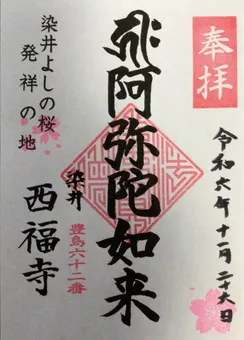 奉拝
令和六年十一月二十六日
阿弥陀如来
豊島六十二番
染井
西福寺
染井よしの桜
発祥の地